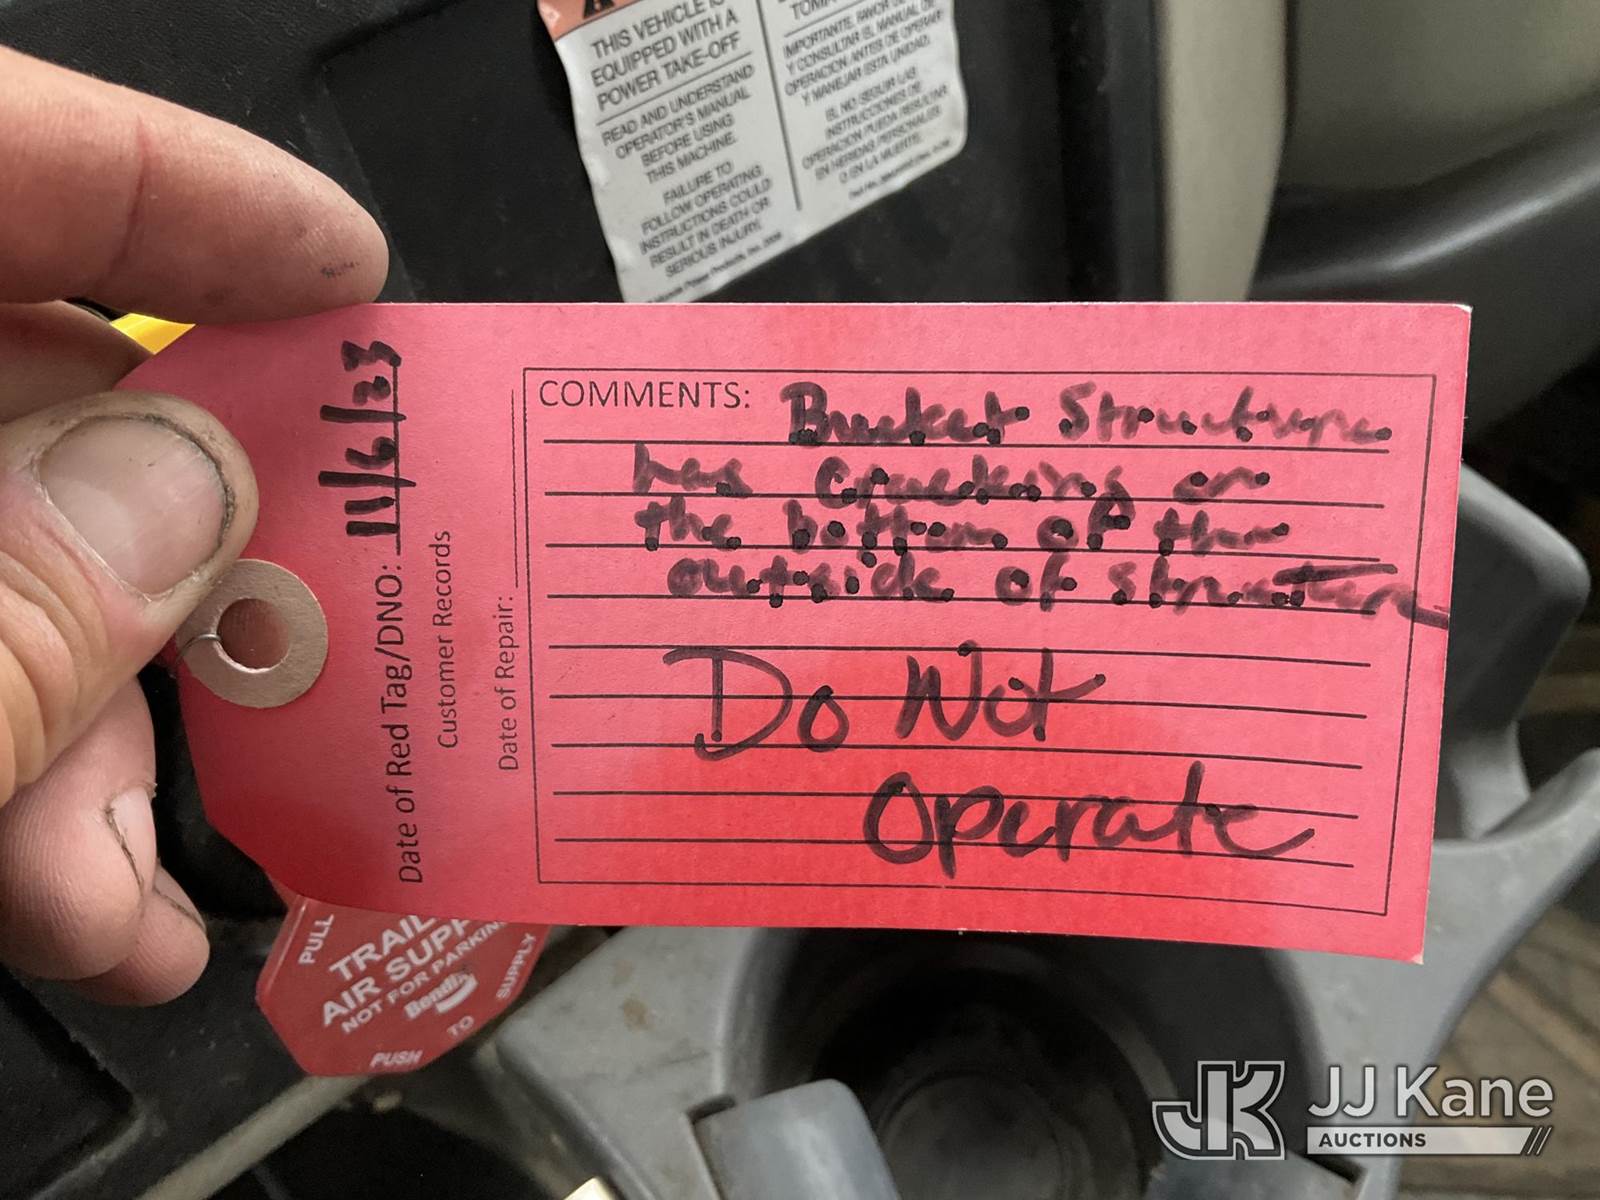 THIS VEHICLE IS
EQUIPPED WITH A
POWER TAKE-OFF
READ AND UNDERSTAND
OPERATOR'S MANUAL
BEFORE USING
THIS MACHINE.
FAILURE TO
FOLLOW OPERATING
INSTRUCTIONS COULD
RESULT IN DEATH OR
SERIOUS INJURY.
Power Products, Inc. 2006
IMPORTANTE. FAVOR DE
Y CONSULTAR EL MANUAL DE
OPERACION ANTES DE OPERAR
Y MANEJAR ESTA UNIDAD.
EL NO SEGUIR LAS
INSTRUCCIONES DE
OPERACION PUEDA RESULTAR
EN HERIDAS PERSONALES
O EN LA MUERTE.
Date of Red Tag/DNO: 11/6/23
Customer Records
Date of Repair:
COMMENTS: Bucket Structure
has cracking on
the bottom of the
outside of structure
Do Not
Operate
PULL
TRAIL
AIR SUPP
NOT FOR PARKIN
Bendix
PUSH TO SUPPLY
JK
JJ Kane
AUCTIONS